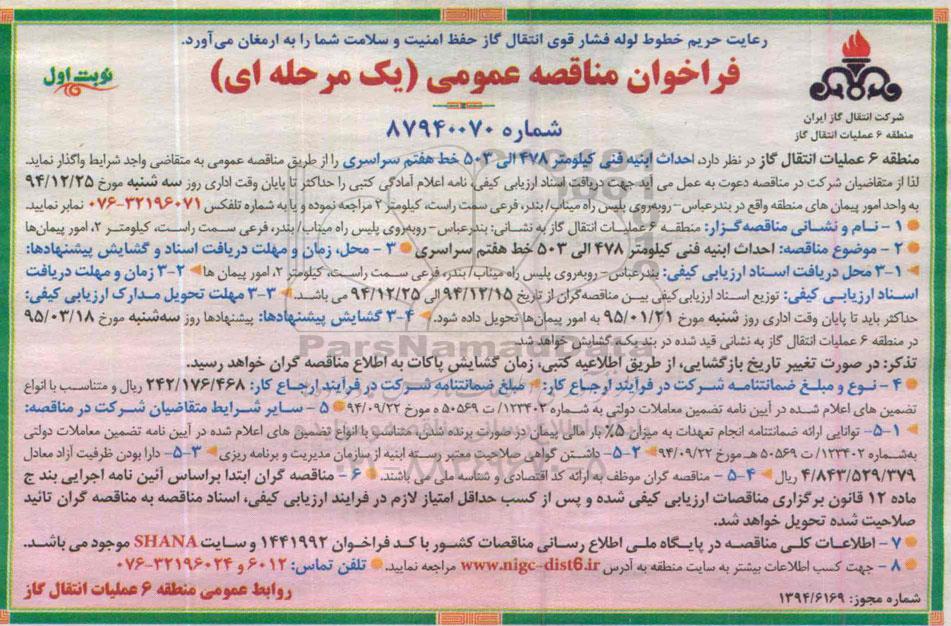 رعایت حریم خطوط لوله فشار قوی انتقال گاز حفظ امنیت و سلامت شما را به ارمغان می‌آورد.
فراخوان مناقصه عمومی (یک مرحله ای)
نوبت اول
شماره ۸۷۹۴۰۰۷۰
شرکت انتقال گاز ایران
منطقه ۶ عملیات انتقال گاز
منطقه ۶ عملیات انتقال گاز در نظر دارد، احداث ابنیه فنی کیلومتر ۴۷۸ الی ۵۰۳ خط هفتم سراسری را از طریق مناقصه عمومی به متقاضی واجد شرایط واگذار نماید.
لذا از متقاضیان شرکت در مناقصه دعوت به عمل می آید جهت دریافت اسناد ارزیابی کیفی، نامه اعلام آمادگی کتبی را حداکثر تا پایان وقت اداری روز سه شنبه مورخ ۹۴/۱۲/۲۵
به واحد امور پیمان های منطقه واقع در بندرعباس- روبه‌روی پلیس راه میناب/ بندر، فرعی سمت راست، کیلومتر ۲ مراجعه نموده و یا به شماره تلفکس ۳۲۱۹۶۰۷۱-۰۷۶ نمابر نمایید.
۱- نام و نشانی مناقصه‌گزار: منطقه ۶ عملیات انتقال گاز به نشانی: بندرعباس- روبه‌روی پلیس راه میناب/ بندر، فرعی سمت راست، کیلومتر ۲، امور پیمان‌ها
۲- موضوع مناقصه: احداث ابنیه فنی کیلومتر ۴۷۸ الی ۵۰۳ خط هفتم سراسری ۳- محل، زمان و مهلت دریافت اسناد و گشایش پیشنهادها:
۳-۱ محل دریافت اسناد ارزیابی کیفی: بندرعباس- روبه‌روی پلیس راه میناب/ بندر، فرعی سمت راست، کیلومتر ۲، امور پیمان ها ۳-۲ زمان و مهلت دریافت
اسناد ارزیابی کیفی: توزیع اسناد ارزیابی کیفی بین مناقصه‌گران از تاریخ ۹۴/۱۲/۱۵ الی ۹۴/۱۲/۲۵ می باشد. ۳-۳ مهلت تحویل مدارک ارزیابی کیفی:
حداکثر باید تا پایان وقت اداری روز شنبه مورخ ۹۵/۰۱/۲۱ به امور پیمان‌ها تحویل داده شود. ۳-۴ گشایش پیشنهادها: پیشنهادها روز سه‌شنبه مورخ ۹۵/۰۳/۱۸
در منطقه ۶ عملیات انتقال گاز به نشانی قید شده در بند یک، گشایش خواهد شد.
تذکر: در صورت تغییر تاریخ بازگشایی، از طریق اطلاعیه کتبی، زمان گشایش پاکات به اطلاع مناقصه گران خواهد رسید.
۴- نوع و مبلغ ضمانتنامه شرکت در فرآیند ارجاع کار: مبلغ ضمانتنامه شرکت در فرآیند ارجاع کار: ۲۴۲/۱۷۶/۴۶۸ ریال و متناسب با انواع
تضمین های اعلام شده در آیین نامه تضمین معاملات دولتی به شماره ۱۲۳۴۰۲/ ت ۵۰۵۶۹ ه مورخ ۹۴/۰۹/۲۲ ۵- سایر شرایط متقاضیان شرکت در مناقصه:
۵-۱- توانایی ارائه ضمانتنامه انجام تعهدات به میزان ۵٪ بار مالی پیمان در صورت برنده شدن، متناسب با انواع تضمین های اعلام شده در آیین نامه تضمین معاملات دولتی
به‌شماره ۱۲۳۴۰۲/ ت ۵۰۵۶۹ هـ مورخ ۹۴/۰۹/۲۲ ۵-۲- داشتن گواهی صلاحیت معتبر رسته ابنیه از سازمان مدیریت و برنامه ریزی ۵-۳- دارا بودن ظرفیت آزاد معادل
۴/۸۴۳/۵۲۹/۳۷۹ ریال ۵-۴- مناقصه گران موظف به ارائه کد اقتصادی و شناسه ملی می باشند. ۶- مناقصه گران ابتدا براساس آئین نامه اجرایی بند ج
ماده ۱۲ قانون برگزاری مناقصات ارزیابی کیفی شده و پس از کسب حداقل امتیاز لازم در فرایند ارزیابی کیفی، اسناد مناقصه به مناقصه گران تائید
صلاحیت شده تحویل خواهد شد.
۷- اطلاعات کلی مناقصه در پایگاه ملی اطلاع رسانی مناقصات کشور با کد فراخوان ۱۴۴۱۹۹۲ و سایت SHANA موجود می باشد.
۸- جهت کسب اطلاعات بیشتر به سایت منطقه به آدرس www.nigc-dist6.ir مراجعه نمایید. تلفن تماس: ۶۰۱۲ و ۳۲۱۹۶۰۲۴-۰۷۶
شماره مجوز: ۱۳۹۴/۶۱۶۹
روابط عمومی منطقه ۶ عملیات انتقال گاز
ParsNamadData